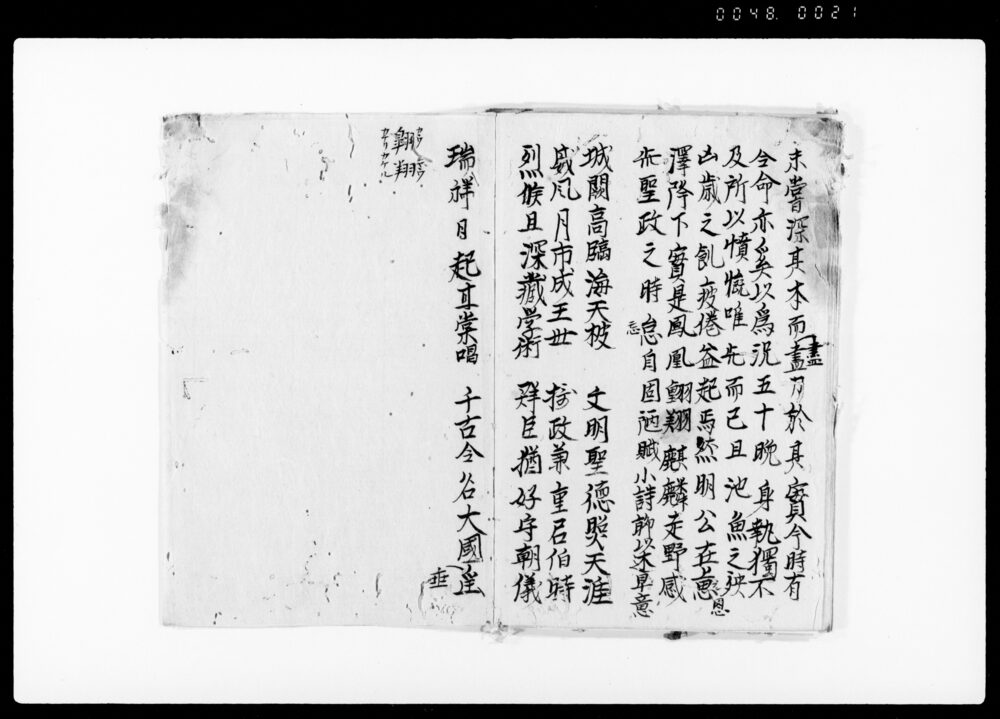 0048.0021
未嘗深其本而盡乃於其實今時有
盡
令命亦奚以爲況五十晩身執獨不
及所以憤慨唯先而已且池魚之殃
凶歳之飢疲倦益起焉然明公在
恩
澤降下實是鳳凰翺翔麒麟走野感
先聖政之時怠自固陋賦小詩
忘
城閣高臨海天披 文明聖德照天涯
盛風月市成王世 政兼重召伯時
烈候且深藏学術 群臣猶好守朝儀
瑞祥日起 棠唱 千古今名大國
垂
翺翔